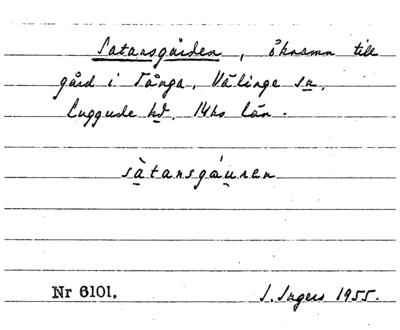 Satansgården, öknamn till
gård i Tånga, Välinge sn,
Luggude hd, Mhs län.
sàtansgáu̯ren
Nr 6101.
I. Ingers 1955.